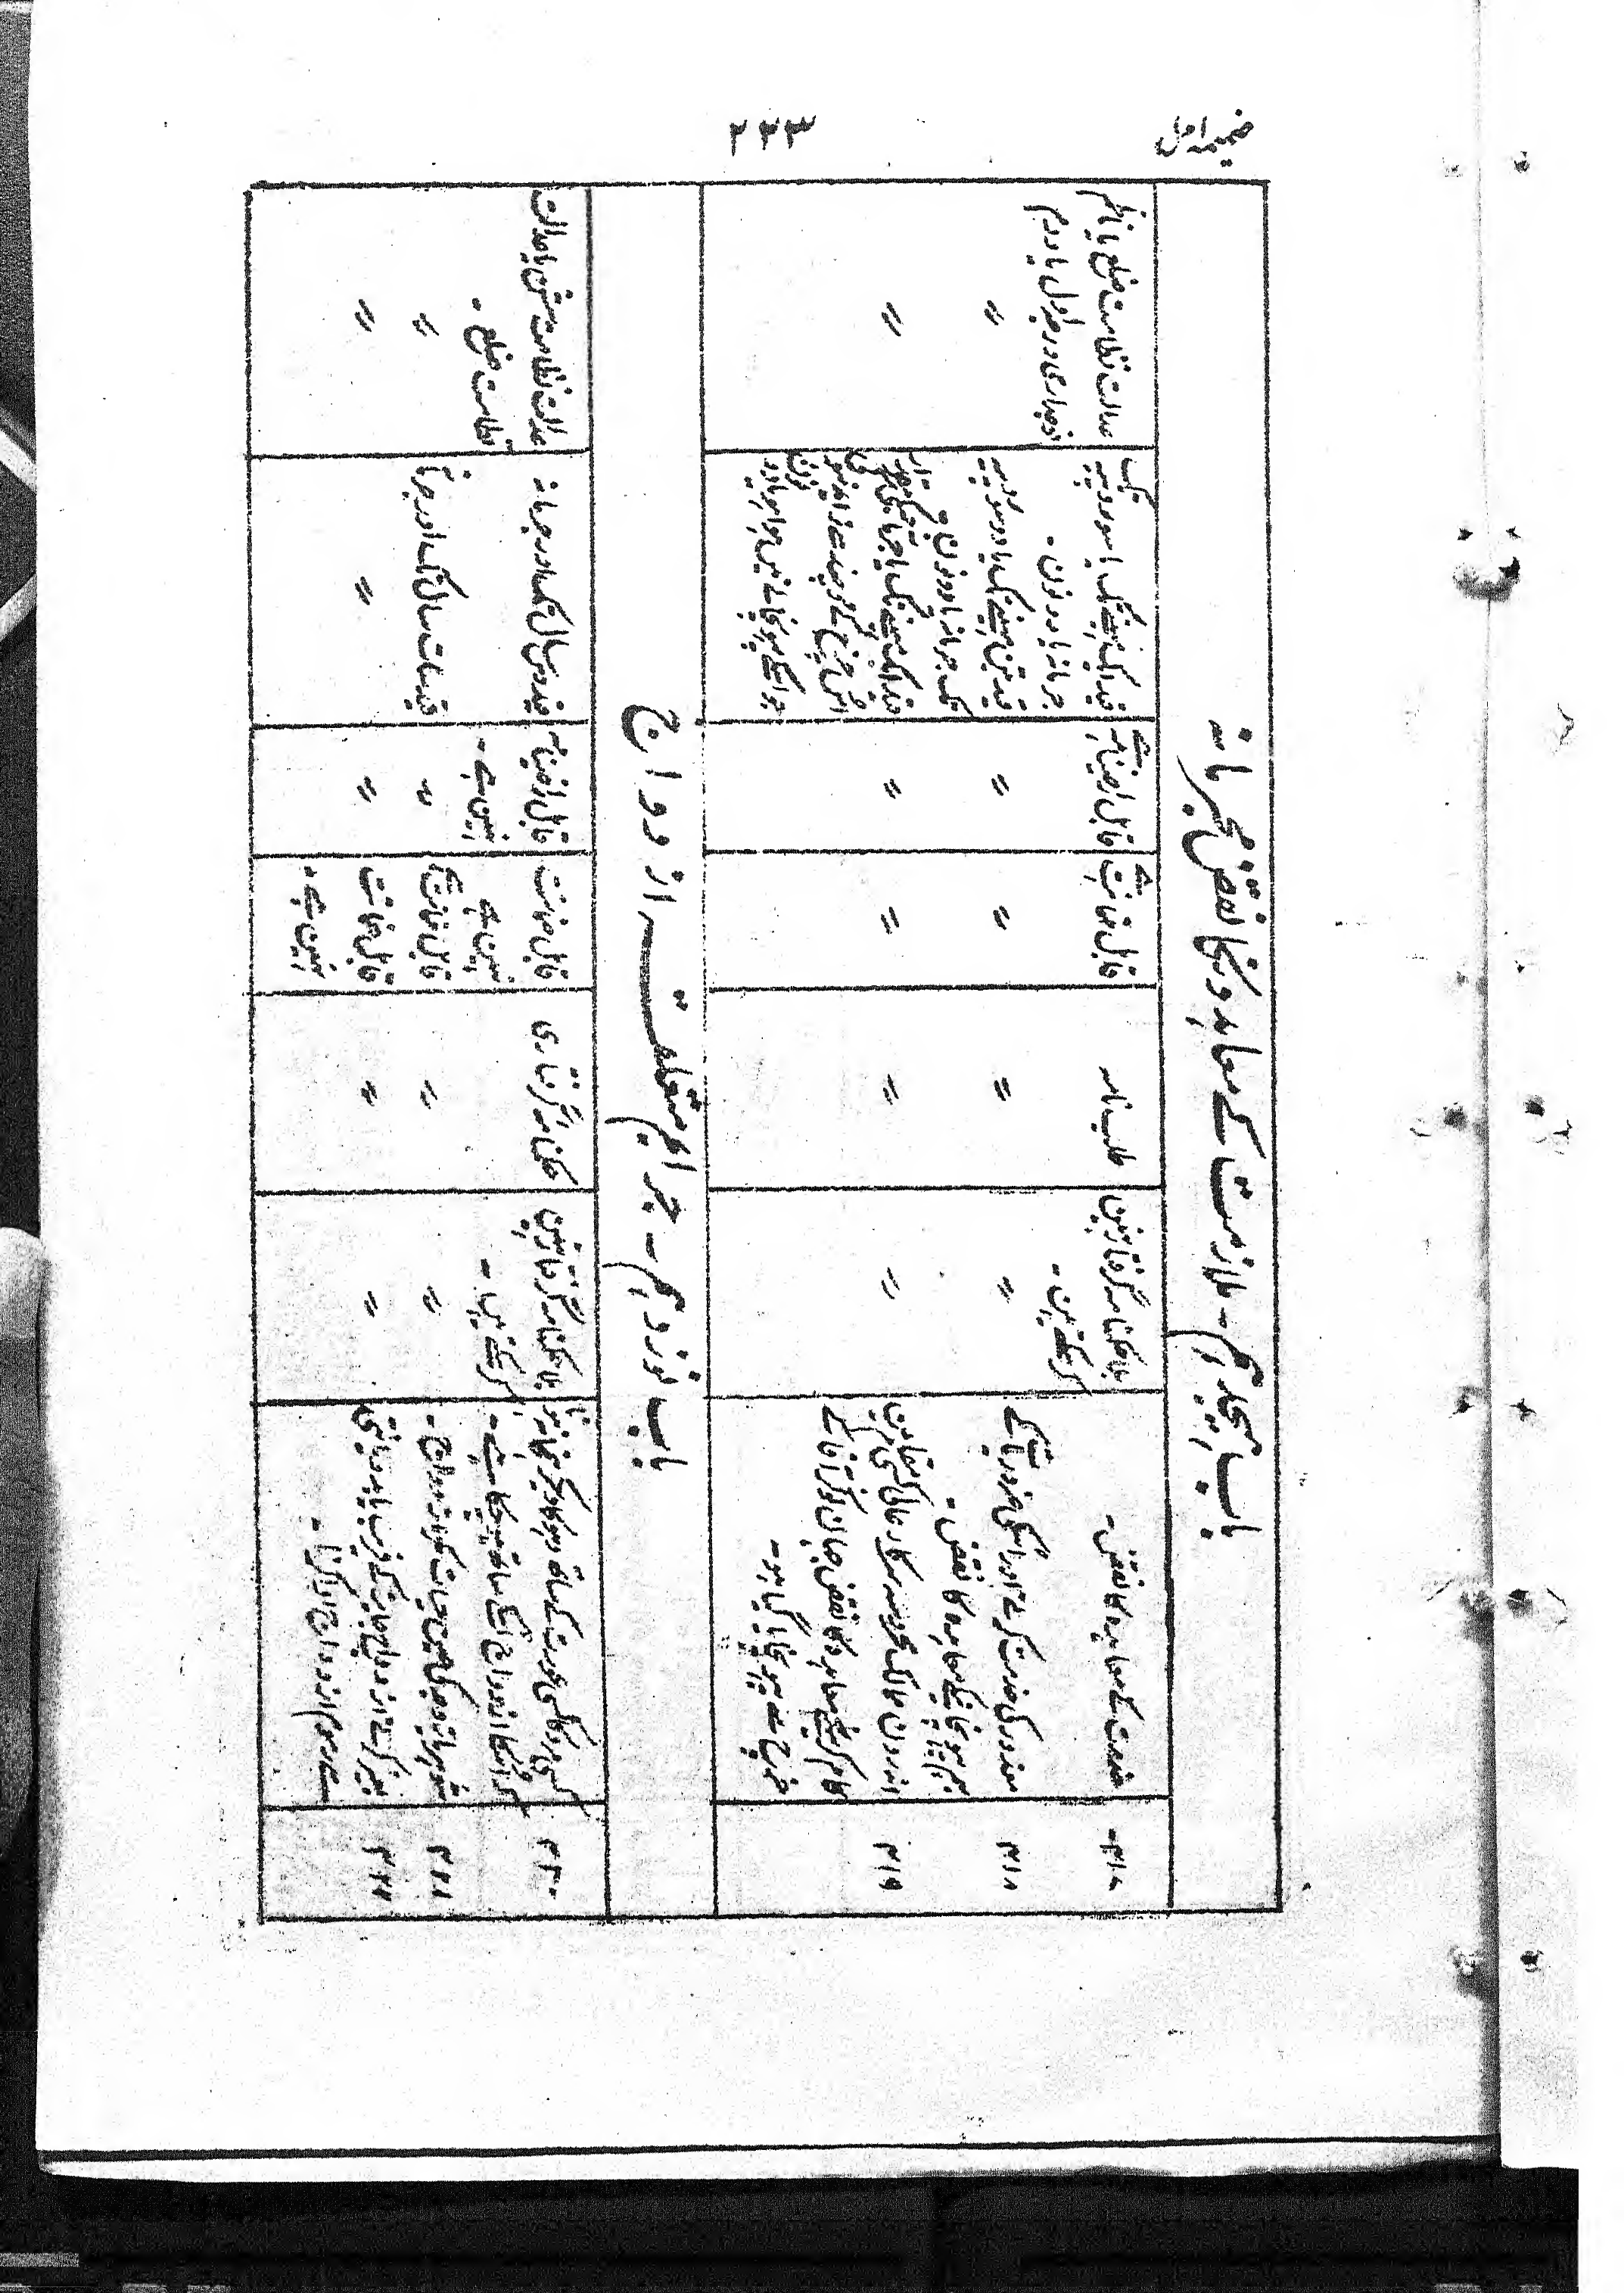 ضمیمہ اول
۲۳۳
باب ہیجدہم - ملازمت کے معاہدوں کا نقض مجرمانہ
۳۱۷
خدمت کے معاہدہ کا نقض -
بلا حکمنامہ گرفتار نہیں
کرسکتے ہیں -
طلب نامہ
قابل ضمانت ہے
قابل راضینامہ ہے
قید ایک مہینے تک یا سو روپیہ تک
جرمانہ یا دونوں -
عدالت نظامت ضلع یا ناظم
فوجداری درجہ اول یا دوم
۳۱۸
معذور کی خدمت کرنے اور اسکی ضروریات کے
بہم پہونچانیکے معاہدہ کا نقض -
〃
〃
〃
〃
قید تین مہینے تک یا دو سو روپیہ
تک جرمانہ یا دونوں
〃
۳۱۹
اندرون ممالک محروسہ سرکار عالی کسی مقام میں
کام کرنیکے معاہدہ کا نقض جہاں نوکر آقا کے
خرچ سے پہونچایا گیا ہو -
〃
〃
〃
〃
قید ایک مہینے تک یا جرمانہ
〃
باب نوزدہم - جرائم متعلقہ ازدواج
۳۲۰
کسی مرد کا کسی عورت کے ساتھ دھوکا دیکر ہمخانہ ہونا
کہ اسکا ازدواج اسکے ساتھ ہو چکا ہے -
بلا حکمنامہ گرفتار نہیں
کرسکتے ہیں -
حکمنامہ گرفتاری
قابل ضمانت
نہیں ہے
قابل راضینامہ
نہیں ہے -
قید دس سال تک اور جرمانہ
عدالت نظامت سشن یا عدالت
نظامت ضلع -
۳۲۱
شوہر یا زوجہ کی حین حیات مکرر ازدواج -
〃
〃
قابل ضمانت ہے
〃
قید سات سال تک اور جرمانہ
〃
۳۲۲
بغیر کرنے ازدواج جایز کے فریب یا بددیانتی
سے مراسم ازدواج ادا کرنا -
〃
〃
قابل ضمانت
نہیں ہے -
〃
〃
〃